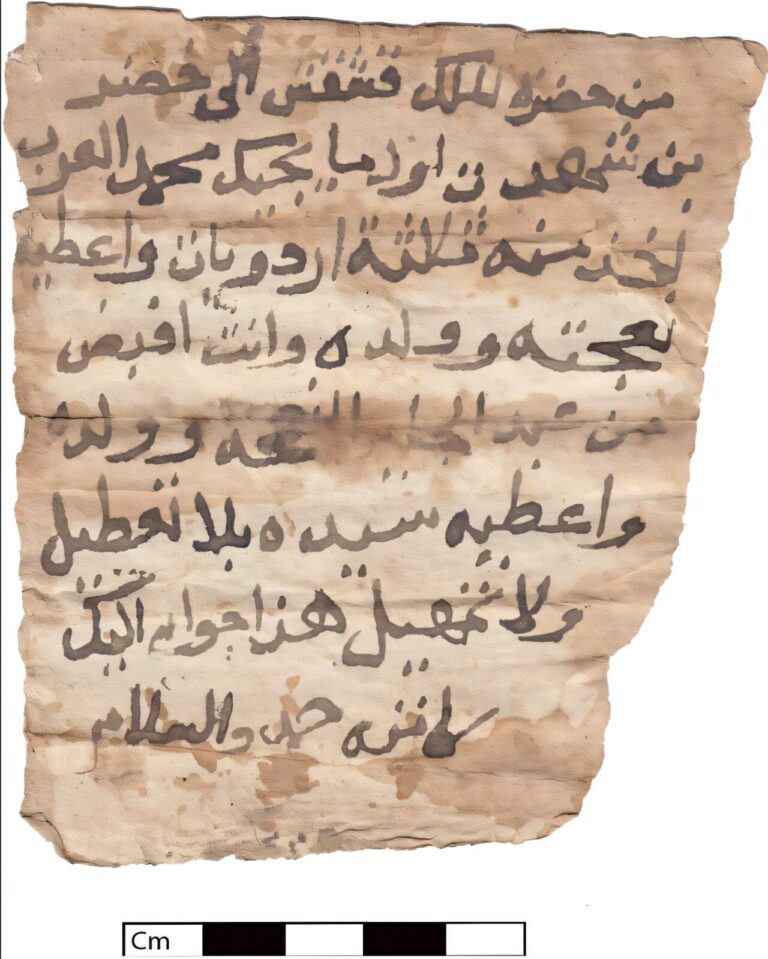 من حضره الملك قشقش الى خضر
بن شهدت اورما يجيك محمد العرب
تخذ منه ثلثة اردويات واعطيه
نعجته وولده وانت اقبض
من عبد النعجه وولده
واعطيه سيده بلا تعطيل
ولا تمهيل هذا جواب اليك
كاتبه حمد والسلام
Cm